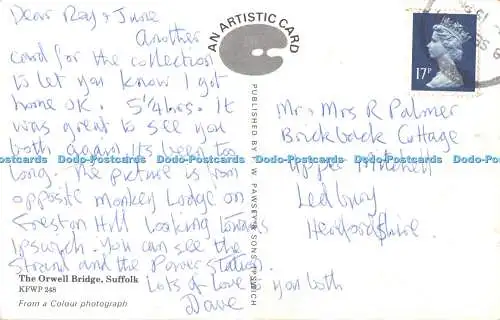 Dear Ray & June
Another
card for the collection
to let you know I got
home OK. 5¼hrs. It
was great to see you
both again Its been too
long. The picture is from
opposite monkey Lodge on
Freston Hill looking towards
Ipswich. You can see the
Strand and the Power Station.
Lots of Love to you both
Dave
The Orwell Bridge, Suffolk
KFWP 248
From a Colour photograph
AN ARTISTIC CARD
PUBLISHED BY W. PAWSEY & SONS IPSWICH
17P
Mr & Mrs R Palmer
Brickback Cottage
Upper Mitchell
Ledbury
Herefordshire.
Dodo-Postcards Dodo-Postcards Dodo-Postcards Dodo-Postcards Dodo-Postcards Dodo-Postcards